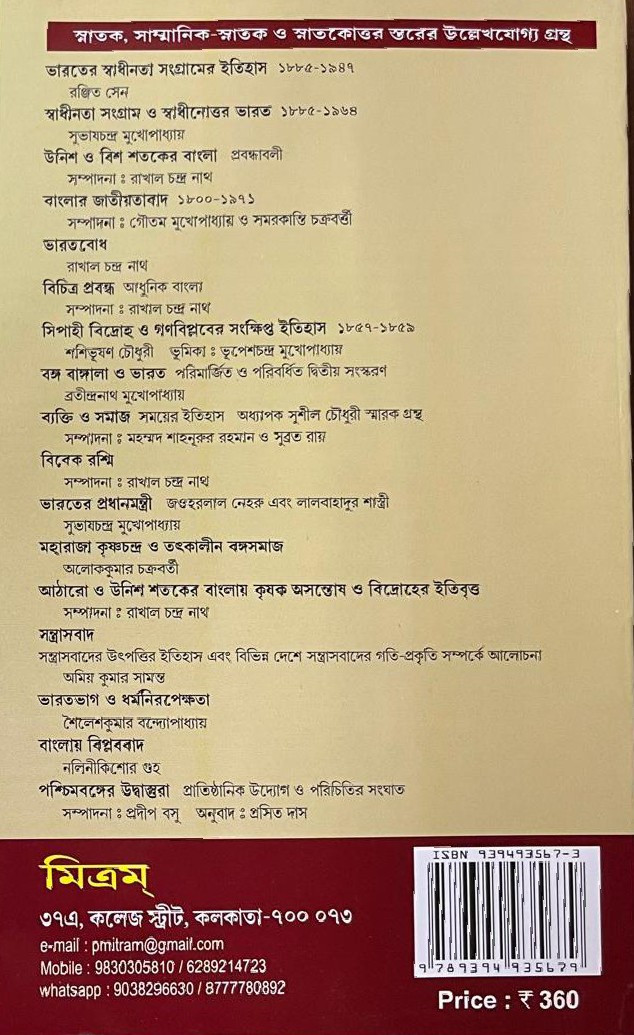 স্নাতক, সাম্মানিক-স্নাতক ও স্নাতকোত্তর স্তরের উল্লেখযোগ্য গ্রন্থ
ভারতের স্বাধীনতা সংগ্রামের ইতিহাস ১৮৮৫-১৯৪৭
রঞ্জিত সেন
স্বাধীনতা সংগ্রাম ও স্বাধীনোত্তর ভারত ১৮৮৫-১৯৬৪
সুভাষচন্দ্র মুখোপাধ্যায়
উনিশ ও বিশ শতকের বাংলা প্রবন্ধাবলী
সম্পাদনা : রাখাল চন্দ্র নাথ
বাংলার জাতীয়তাবাদ ১৮০০-১৯৭১
সম্পাদনা : গৌতম মুখোপাধ্যায় ও সমরকান্তি চক্রবর্ত্তী
ভারতবোধ
রাখাল চন্দ্র নাথ
বিচিত্র প্রবন্ধ আধুনিক বাংলা
সম্পাদনা : রাখাল চন্দ্র নাথ
সিপাহী বিদ্রোহ ও গণবিপ্লবের সংক্ষিপ্ত ইতিহাস ১৮৫৭-১৮৫৯
শশিভূষণ চৌধুরী ভূমিকা : ভূপেশচন্দ্র মুখোপাধ্যায়
বঙ্গ বাঙ্গালা ও ভারত পরিমার্জিত ও পরিবর্ধিত দ্বিতীয় সংস্করণ
ব্রতীন্দ্রনাথ মুখোপাধ্যায়
ব্যক্তি ও সমাজ সময়ের ইতিহাস অধ্যাপক সুশীল চৌধুরী স্মারক গ্রন্থ
সম্পাদনা : মহম্মদ শাহনূরুর রহমান ও সুব্রত রায়
বিবেক রশ্মি
সম্পাদনা : রাখাল চন্দ্র নাথ
ভারতের প্রধানমন্ত্রী জওহরলাল নেহরু এবং লালবাহাদুর শাস্ত্রী
সুভাষচন্দ্র মুখোপাধ্যায়
মহারাজা কৃষ্ণচন্দ্র ও তৎকালীন বঙ্গসমাজ
অলোককুমার চক্রবর্তী
আঠারো ও উনিশ শতকের বাংলায় কৃষক অসন্তোষ ও বিদ্রোহের ইতিবৃত্ত
সম্পাদনা : রাখাল চন্দ্র নাথ
সন্ত্রাসবাদ
সন্ত্রাসবাদের উৎপত্তির ইতিহাস এবং বিভিন্ন দেশে সন্ত্রাসবাদের গতি-প্রকৃতি সম্পর্কে আলোচনা
অমিয় কুমার সামন্ত
ভারতভাগ ও ধর্মনিরপেক্ষতা
শৈলেশকুমার বন্দ্যোপাধ্যায়
বাংলায় বিপ্লববাদ
নলিনীকিশোর গুহ
পশ্চিমবঙ্গের উদ্বাস্তুরা প্রাতিষ্ঠানিক উদ্যোগ ও পরিচিতির সংঘাত
সম্পাদনা : প্রদীপ বসু অনুবাদ : প্রসিত দাস
মিত্রম্
৩৭এ, কলেজ স্ট্রীট, কলকাতা-৭০০ ০৭৩
e-mail : pmitram@gmail.com
Mobile : 9830305810 / 6289214723
whatsapp : 9038296630 / 8777780892
ISBN 939493567-3
9 789394 935679
Price : ₹ 360